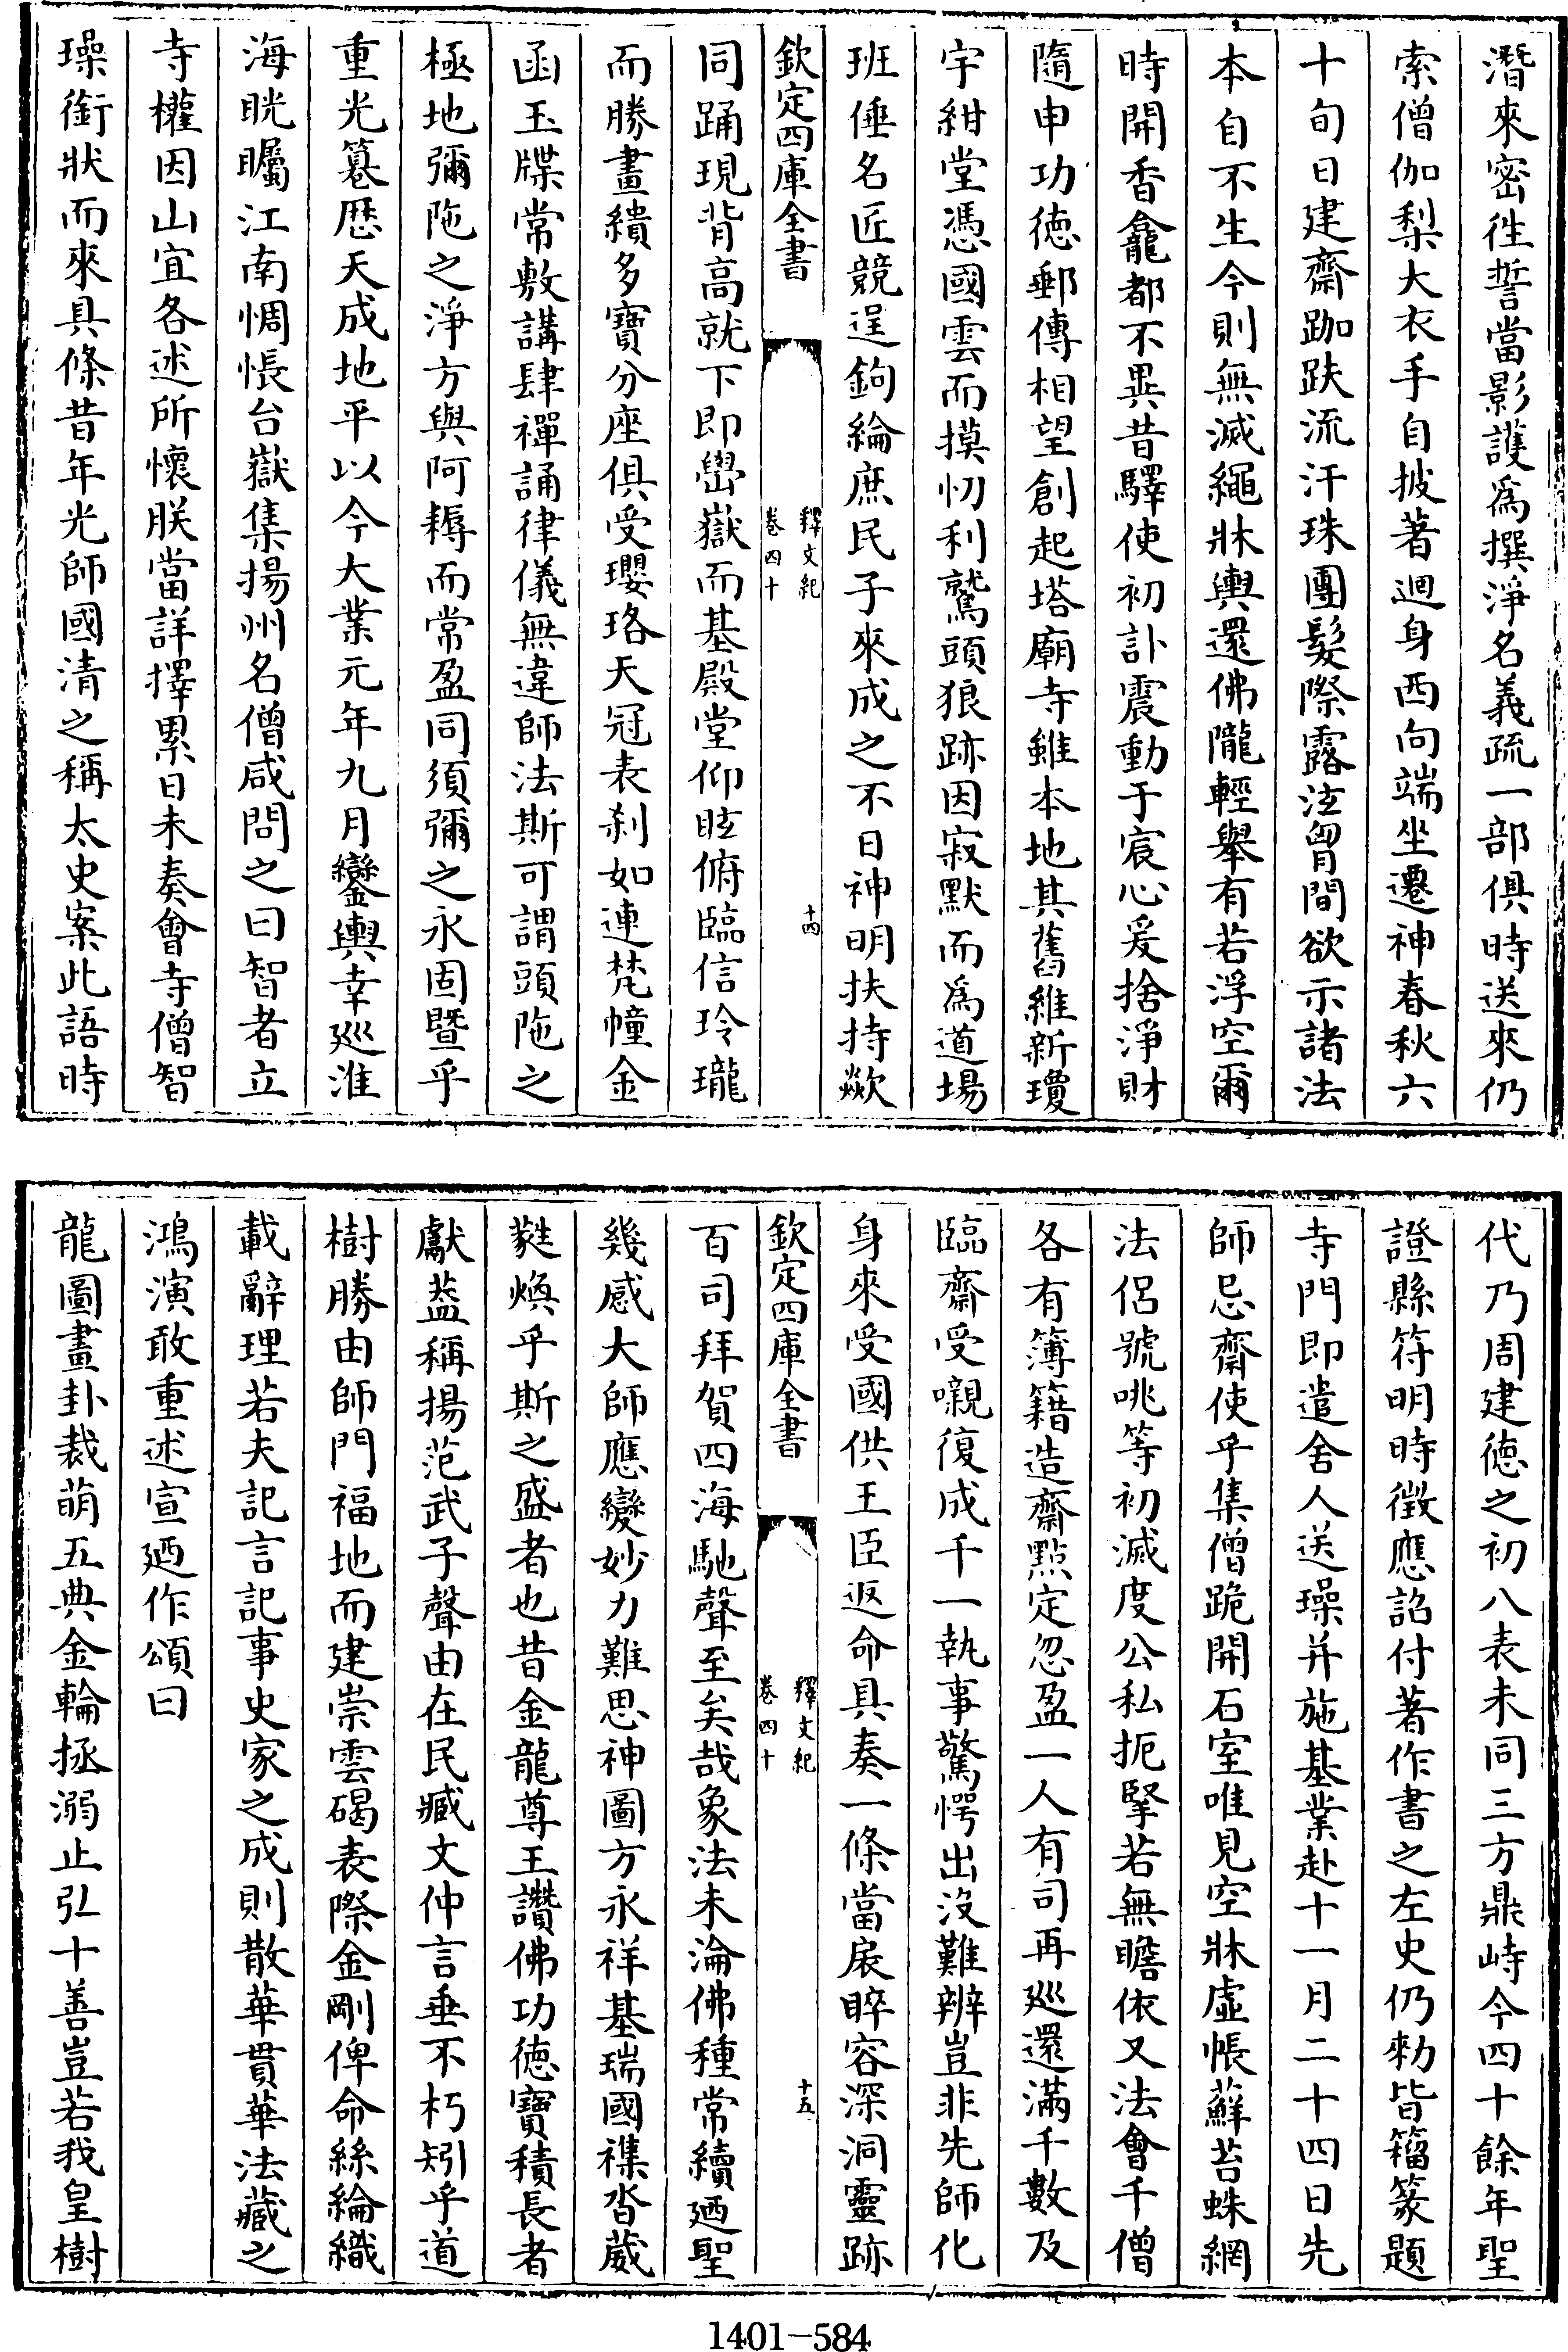 潛來密徃誓當影護爲撰淨名義疏一部俱時送來仍
索僧伽梨大衣手自披著迴身西向端坐遷神春秋六
十旬日建齋跏趺流汗珠團髮際露泫胷間欲示諸法
本自不生今則無滅繩牀輿還佛隴輕舉有若浮空爾
時開香龕都不異昔驛使初訃震動于宸心爰捨淨財
隨申功德郵傳相望創起塔廟寺雖本地其舊維新瓊
宇紺堂憑國雲而摸忉利鷲頭狼跡因寂默而爲道場
班倕名匠競逞鉤綸庶民子來成之不日神明扶持歘
欽定四庫全書
釋文紀
卷四十
十四
同踊現背高就下即巒嶽而基殿堂仰眩俯臨信玲瓏
而勝畫繢多寶分座俱受瓔珞天冠表刹如連梵幢金
函玉牒常敷講肆禪誦律儀無違師法斯可謂頭陁之
極地彌陁之淨方與阿耨而常盈同須彌之永固暨乎
重光纂歷天成地平以今大業元年九月鑾輿幸廵淮
海眺矚江南惆悵台嶽集揚州名僧咸問之曰智者立
寺權因山宜各述所懷朕當詳擇累日未奏會寺僧智
璪銜狀而來具條昔年光師國清之稱太史案此語時
代乃周建德之初八表未同三方鼎峙今四十餘年聖
證縣符明時徵應詔付著作書之左史仍勑皆籀篆題
寺門即遣舍人送璪并施基業赴十一月二十四日先
師忌齋使乎集僧跪開石室唯見空牀虛帳蘚苔蛛網
法侶號咷等初滅度公私扼掔若無瞻依又法會千僧
各有簿籍造齋點定忽盈一人有司再廵還滿千數及
臨齋受嚫復成千一執事驚愕出沒難辨豈非先師化
身來受國供王臣返命具奏一條當扆睟容深洞靈跡
欽定四庫全書
釋文紀
卷四十
十五
百司拜賀四海馳聲至矣哉象法未淪佛種常續廼聖
幾感大師應變妙力難思神圖方永祥基瑞國襍沓葳
蕤煥乎斯之盛者也昔金龍尊王讚佛功德寶積長者
獻葢稱揚范武子聲由在民臧文仲言垂不朽矧乎道
樹勝由師門福地而建崇雲碣表際金剛俾命絲綸織
載辭理若夫記言記事史家之成則散華貫華法藏之
鴻演敢重述宣廼作頌曰
龍圖畫卦裁萌五典金輪拯溺止弘十善豈若我皇樹
1401—584